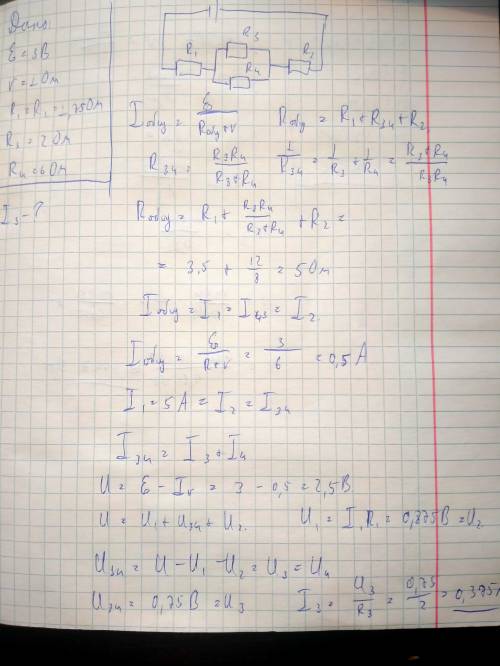 Дано:
ε = 3В
r = 1 Ом
R₁ = R₂ = 1,75 Ом
R₃ = 2 Ом
R₄ = 6 Ом
I₃ - ?
R₁ R₃ R₄ R₂
Iобщ = ε / (Rобщ + r)   Rобщ = R₁ + R₃₄ + R₂
R₃₄ = R₃R₄ / (R₃ + R₄)   1/R₃₄ = 1/R₃ + 1/R₄ = (R₃ + R₄) / (R₃R₄)
Rобщ = R₁ + R₃R₄ / (R₃ + R₄) + R₂ =
= 3,5 + 12/8 = 5 Ом
Iобщ = I₁ = I₄,₃ = I₂
Iобщ = ε / (R + r) = 3/6 = 0,5 А
I₁ = 5А = I₂ = I₃₄
I₃₄ = I₃ + I₄
U = ε - Ir = 3 - 0,5 = 2,5 В
U = U₁ + U₃₄ + U₂.   U₁ = I₁R₁ = 0,875 В = U₂
U₃₄ = U - U₁ - U₂ = U₃ = U₄
U₃₄ = 0,75 В = U₃   I₃ = U₃/R₃ = 0,75/2 = 0,375А